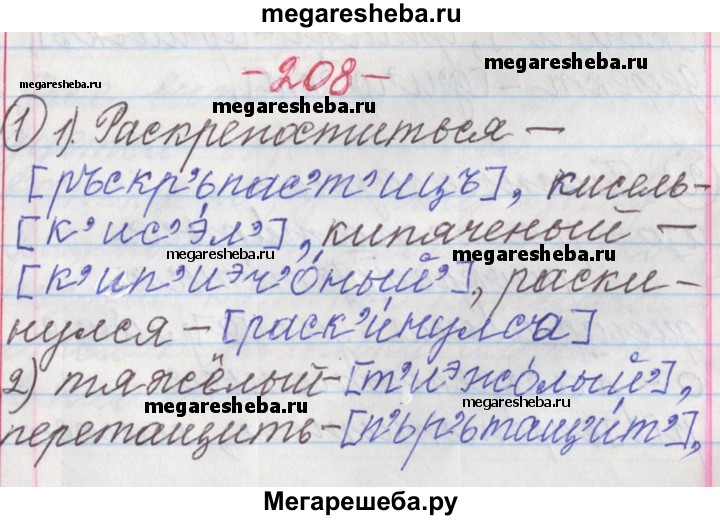 megaresheba.ru
-208-
megaresheba.ru
megaresheba.ru
megaresheba.ru
① 1). Раскрепоститься –
[ръскр’ьпас’т’ицъ], кисель-
[к’ис’э́л’], кипяченый –
megaresheba.ru
megaresheba.ru
[к’ип’иэч’о́ный’], раски-
нулся – [раск’и́нулса]
2) тяжёлый-[т’иэжо́лый’],
megaresheba.ru
megaresheba.ru
перетащить-[п’ьр’ьтащи́т’],
Мегарешеба.ру